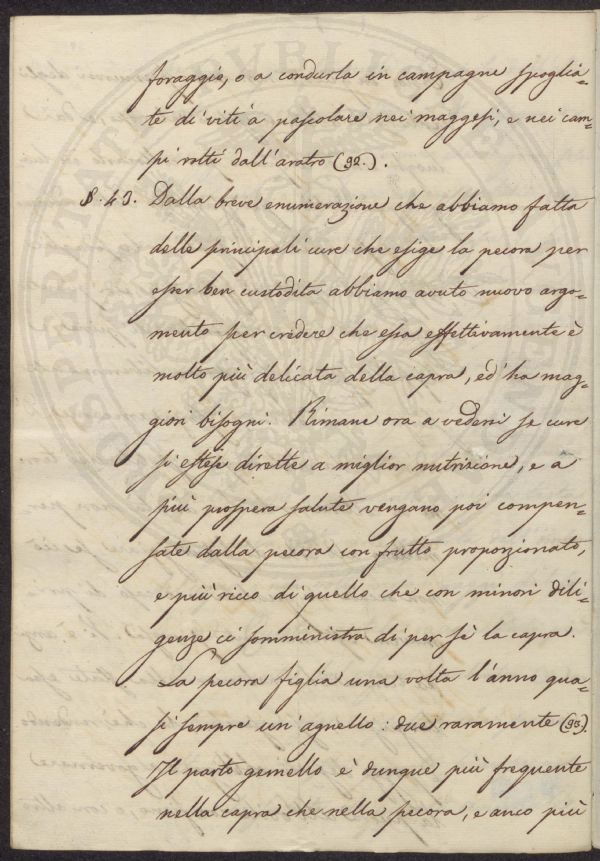 foraggio, o a condurla in campagne spoglia=
te di viti a pascolare nei maggesi, e nei cam=
pi rotti dall'aratro (92.).
§. 43. Dalla breve enumerazione che abbiamo fatta
delle principali cure che esige la pecora per
esser ben custodita abbiamo avuto nuovo argo=
mento per credere che essa effettivamente è
molto più delicata della capra, ed ha mag=
giori bisogni. Rimane ora a vedersi se cure
sì estese dirette a miglior nutrizione, e a
più prospera salute vengano poi compen=
sate dalla pecora con frutto proporzionato,
e più ricco di quello che con minori dili=
genze ci somministra di per sè la capra.
La pecora figlia una volta l'anno qua=
si sempre un'agnello: due raramente (93).
Il parto gemello è dunque più frequente
nella capra che nella pecora, e anco più